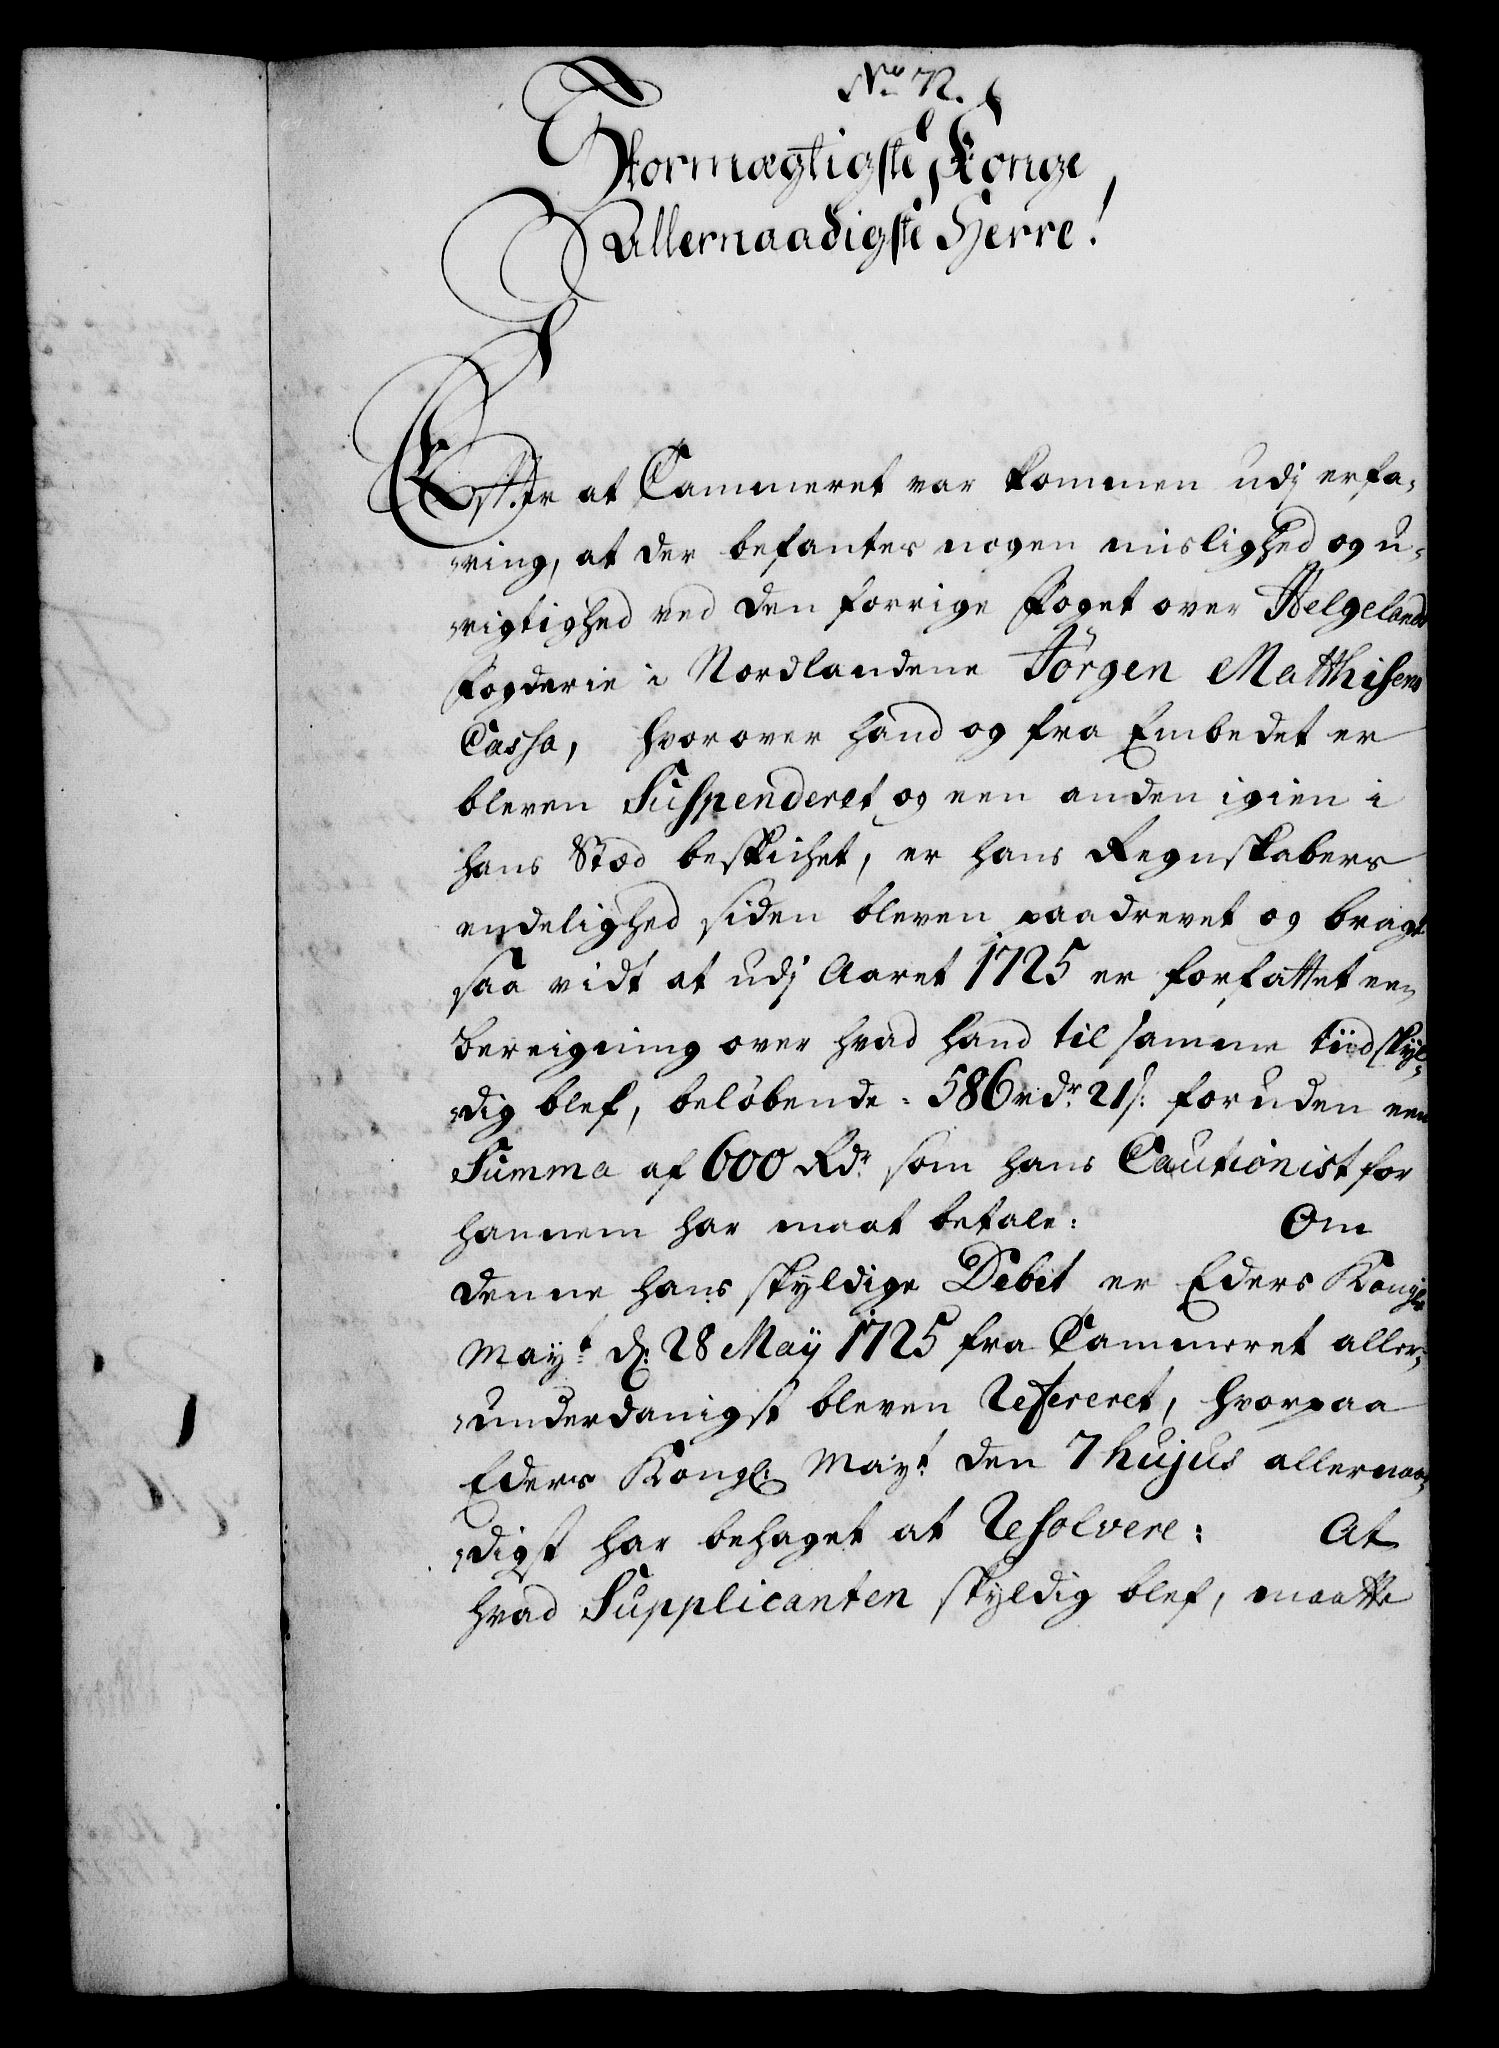 No 72.
Stormægtigste Konge
Allernaadigste Herre!
Efter at Cammeret var kommen udj erfa-
ring, at der befantes nogen mislighed og u-
rigtighed ved den forrige Foget over Helgelands
Fogderie i Nordlandene Jörgen Matthisens
Cassa, hvorover hand og fra Embedet er
bleven Suspenderet og een anden igien i
hans Stæd beskichet, er hans Regnskabers
endelighed siden bleven paadrevet og bragt
saa vidt at udj Aaret 1725 er forfattet een
bereigning over hvad hand til samme tiid skyl-
dig blef, belöbende - 586 rdr. 21 s: foruden een
Summa af 600 Rdr. som hans Cautionist for
hannem har maat betale: Om
denne hans skyldige Debit er Eders Kongl.
Mayt. d. 28 Maÿ 1725 fra Cammeret aller-
underdanigst bleven Refereret, hvorpaa
Eders Kongl. Mayt. den 7 hujus allernaa-
digst har behaget at Resolvere: At
hvad Supplicanten skyldig blef, maatte